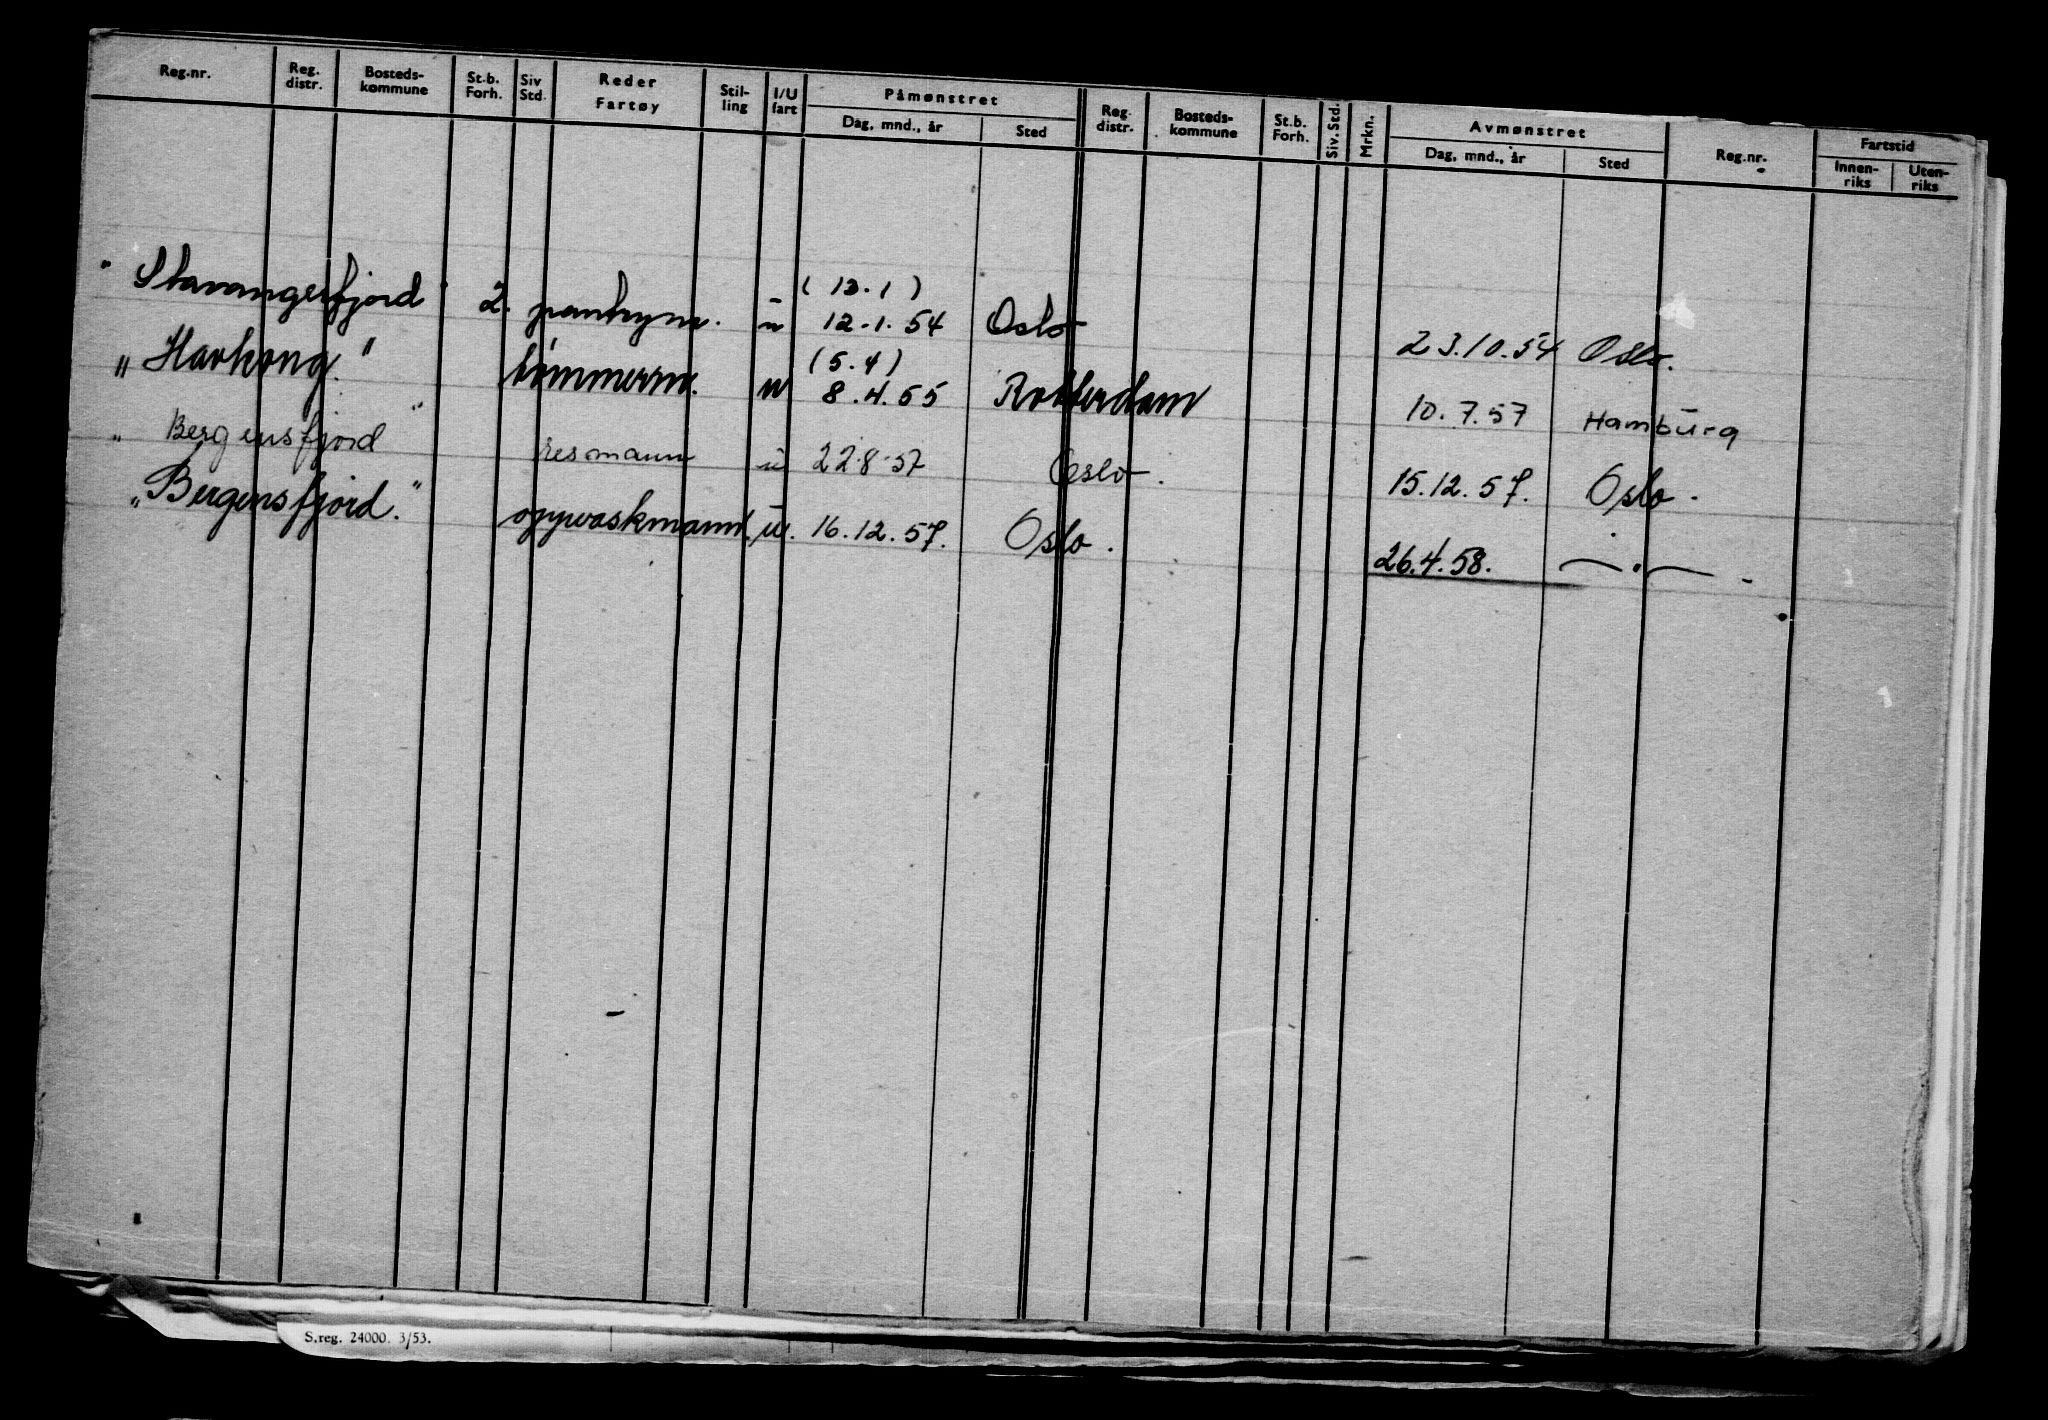 Reg.nr. Reg. distr. Bosteds- kommune St.b. Forh. Siv Std. Reder Fartøy Stil- ling I/U fart Påmønstret Dag, mnd., år Sted Reg. distr. Bosteds- kommune St.b. Forh. Siv. Std. Mrkn. Avmønstret Dag, mnd., år Sted Reg.nr. Fartstid Innen- riks Uten- riks
(13.1)
"Stavangerfjord" 2. pantrym. u 12.1.54 Oslo 23.10.54 Oslo.
(5.4)
"Havkong." tømmerm. u 8.4.55 Rotterdam 10.7.57 Hamburg
"Bergensfjord" resmann u 22.8.57 Oslo. 15.12.57. Oslo.
"Bergensfjord." oppvaskmann. u. 16.12.57. Oslo. 26.4.58. — " —
S.reg. 24000. 3/53.